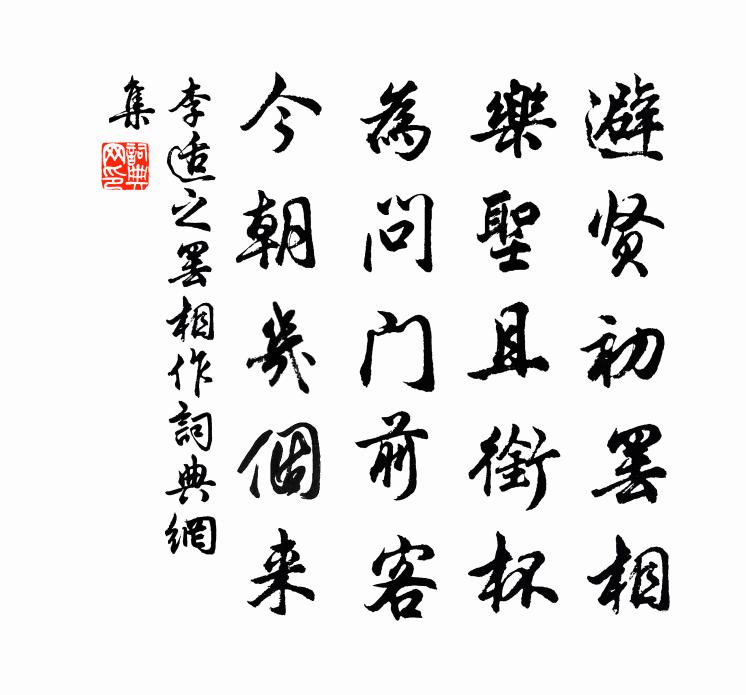 避贤初罢相
樂聖且銜杯
為問門前客
今朝幾個来
李适之罢相作詞典網
集
詞典
网印